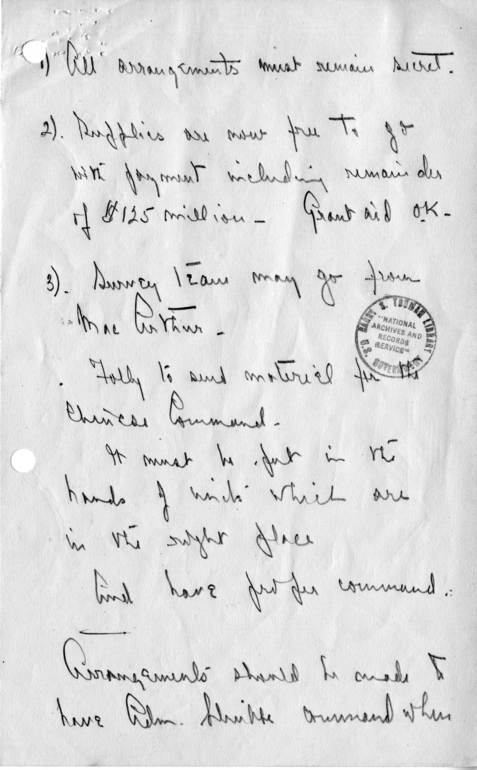 1) All arrangements must remain secret.
2). Supplies are now free To go
with payment including remainder
of $125 million - Grant aid O.K. -
3). Survey Team may go from
MacArthur -
HARRY S. TRUMAN LIBRARY
"NATIONAL
ARCHIVES AND
RECORDS
SERVICE"
U.S. GOVERNMENT
Folly to send material for the
Chinese Command.
It must be put in the
hands of units which are
in the right place
And have proper command.
Arrangements should be made to
have Adm. command when